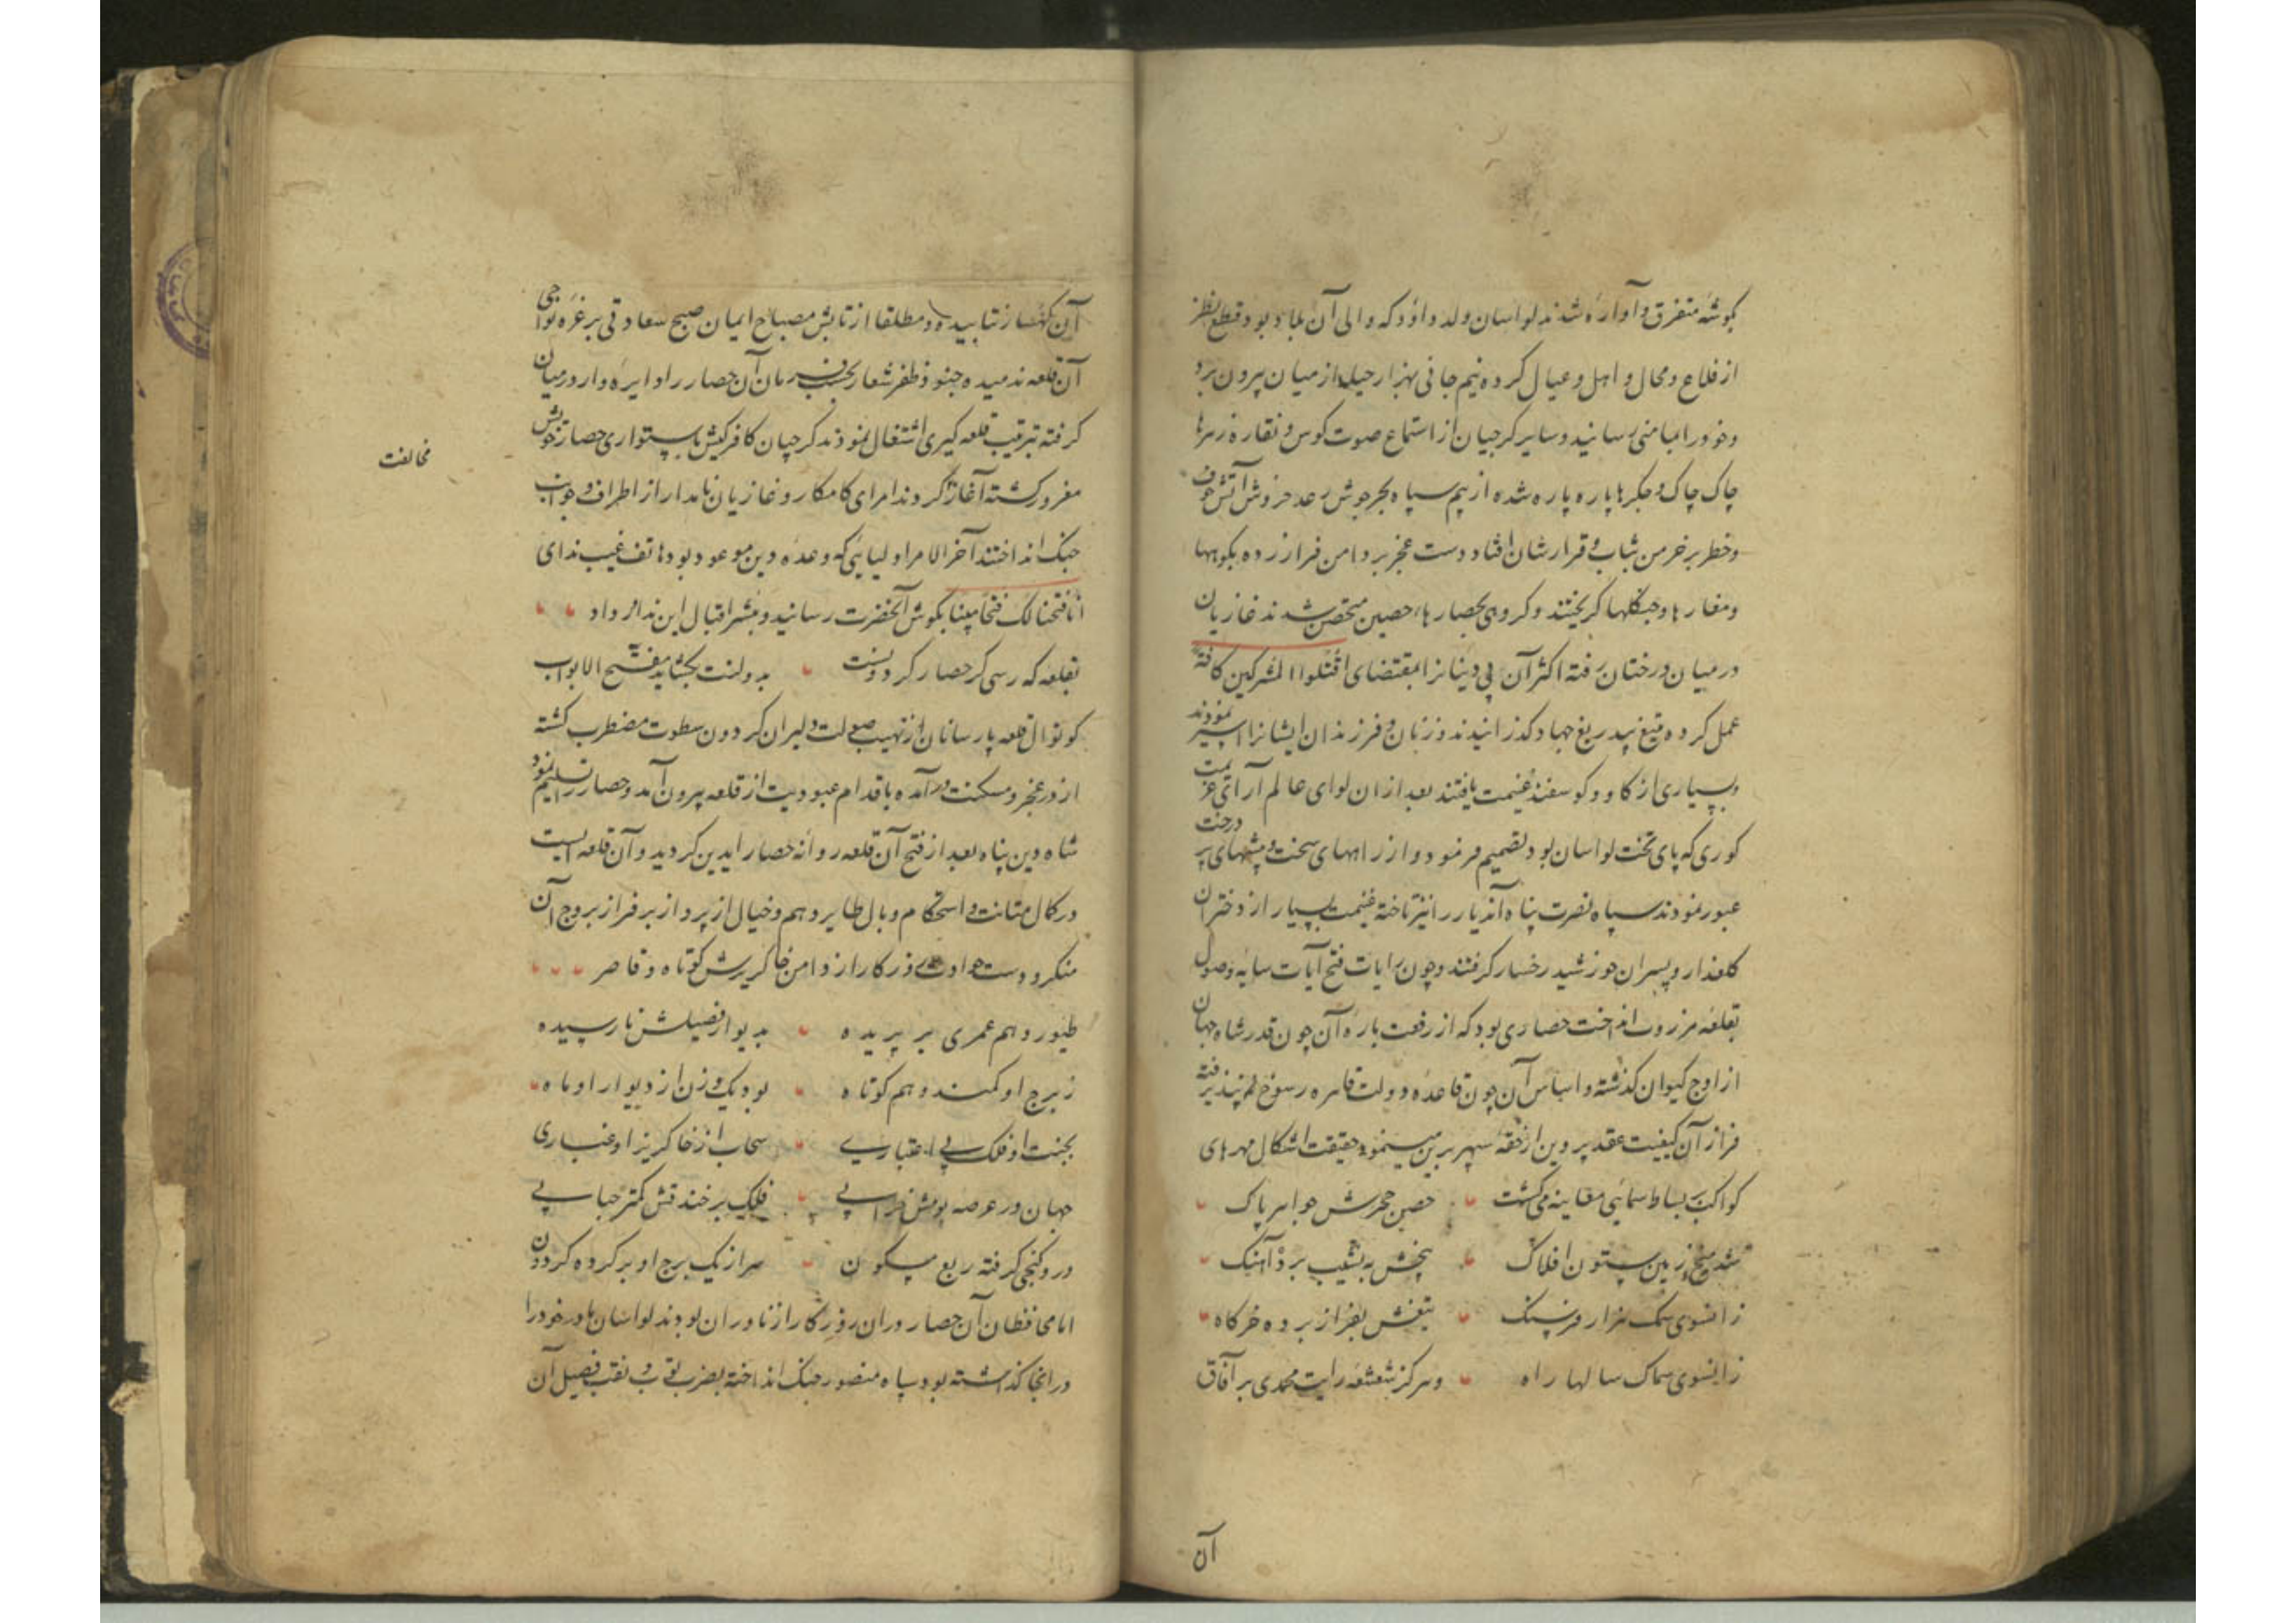 بگوشهٔ متفرق و آواره شدند لواسان ولد داود که والی آن بلاد بود قطع نظر
از قلاع و محال و اهل و عیال کرده نیم جانی بهزار حیله از میان بیرون برد
و خود را بمامنی رسانید و سایر کرجیان از استماع صوت کوس و نقاره زهرها
چاک چاک و جکرها پاره پاره شده از بیم سپاه بحر جوش رعد خروش آتش خوف
و خطر بر خرمن شاب و قرارشان افتاد دست عجز بر دامن فرار زده بکوهها
و مغارها و جنکلها کریختند و کروهی بحصارهاء حصین متحصن شدند غازیان
در میان درختان رفته اکثر آن بی دینانرا بمقتضای اقتلوا المشرکین کافة
عمل کرده بتیغ بیدریغ جهاد کذرانیدند و زنان و فرزندان ایشانرا اسیر نمودند
و بسیاری از کاو و کوسفند غنیمت یافتند بعد از ان لوای عالم آرای عزیمت
کوری که پای تخت لواسان بود تصمیم فرمود و از راههای سخت و بیشهای پر درخت
عبور نمودند سپاه نصرت پناه آندیار را نیز تاخته غنیمت بسیار از دختران
کلعذار و پسران خورشید رخسار کرفتند و چون رایات فتح آیات سایه وصول
بقلعه مزروت انداخت حصاری بود که از رفعت باره آن چون قدر شاه جهان
از اوج کیوان کذشته و اساس آن چون قاعده دولت قاهره رسوخ پذیرفته
فراز آن کیفیت عقد پروین از حقهٔ سپهر برین مینمود و حقیقت اشکال مهرهای
کواکب بر بساط سمائی معاینه می کشت حصن حجرش جواهر پاک
شد میخ زمین ستون افلاک بیخش به نشیب برد آهنک
زانسوی سمک هزار فرسنک تیغش بفراز برده خرکاه
زانسوی سماک سالها راه و هرکز شعشعه رایت محمدی بر آفاق
آن
آن کهسار نتابیده و مطلقا از تابش مصباح ایمان صبح سعادتی بر غره نواحی
آن قلعه ندمیده جنود ظفر شعار بحسب فرمان آن حصار را دایره وار در میان
کرفته بترتیب قلعه کیری اشتغال نمودند کرجیان کافر کیش باستواری حصار خویش
مغرور کشته آغاز کردند امرای کامکار و غازیان نامدار از اطراف و جوانب
مخالفت
جنک انداختند آخر الامر اولیایی که وعده دین موعود بود هاتف غیب ندای
انا فتحنا لک فتحا مبینا بکوش آنحضرت رسانید و مبشر اقبال این ندا در داد
بقلعه که رسی کر حصار کردونست بدولتت بکشاید مفتح الابواب
کوتوال قلعه پارسانان از نهیب صولت دلیران کردون سطوت مضطرب کشته
از در عجز و مسکنت در آمده باقدام عبودیت از قلعه بیرون آمد و حصار را تسلیم نمود
شاه دین پناه بعد از فتح آن قلعه روانه حصار ایدین کردید و آن قلعه ایست
در کمال متانت و استحکام و بال طایر وهم و خیال از پرواز بر فراز بروج آن
منکر و دست حوادث روزکار از دامن خاکریزش کوتاه و قاصر
طیور وهم عمری بر پریده بدیوار فصیلش نارسیده
ز برج او کمند وهم کوتاه بود یک روزن از دیوار او ماه
بجنب او فلک بی اعتباری سحاب از خاکریز او غباری
جهان در عرصه بومش خرابی فلک بر خندقش کمتر حبابی
درو کنجی کرفته ربع مسکون سر از یک برج او بر کرده کردون
اما محافظان آن حصار در ان روزکار از ناوران بودند لواسان مادر خود را
در انجا کذاشته بود سپاه منصور جنک انداخته بضرب توپ و نقب فصیل آن